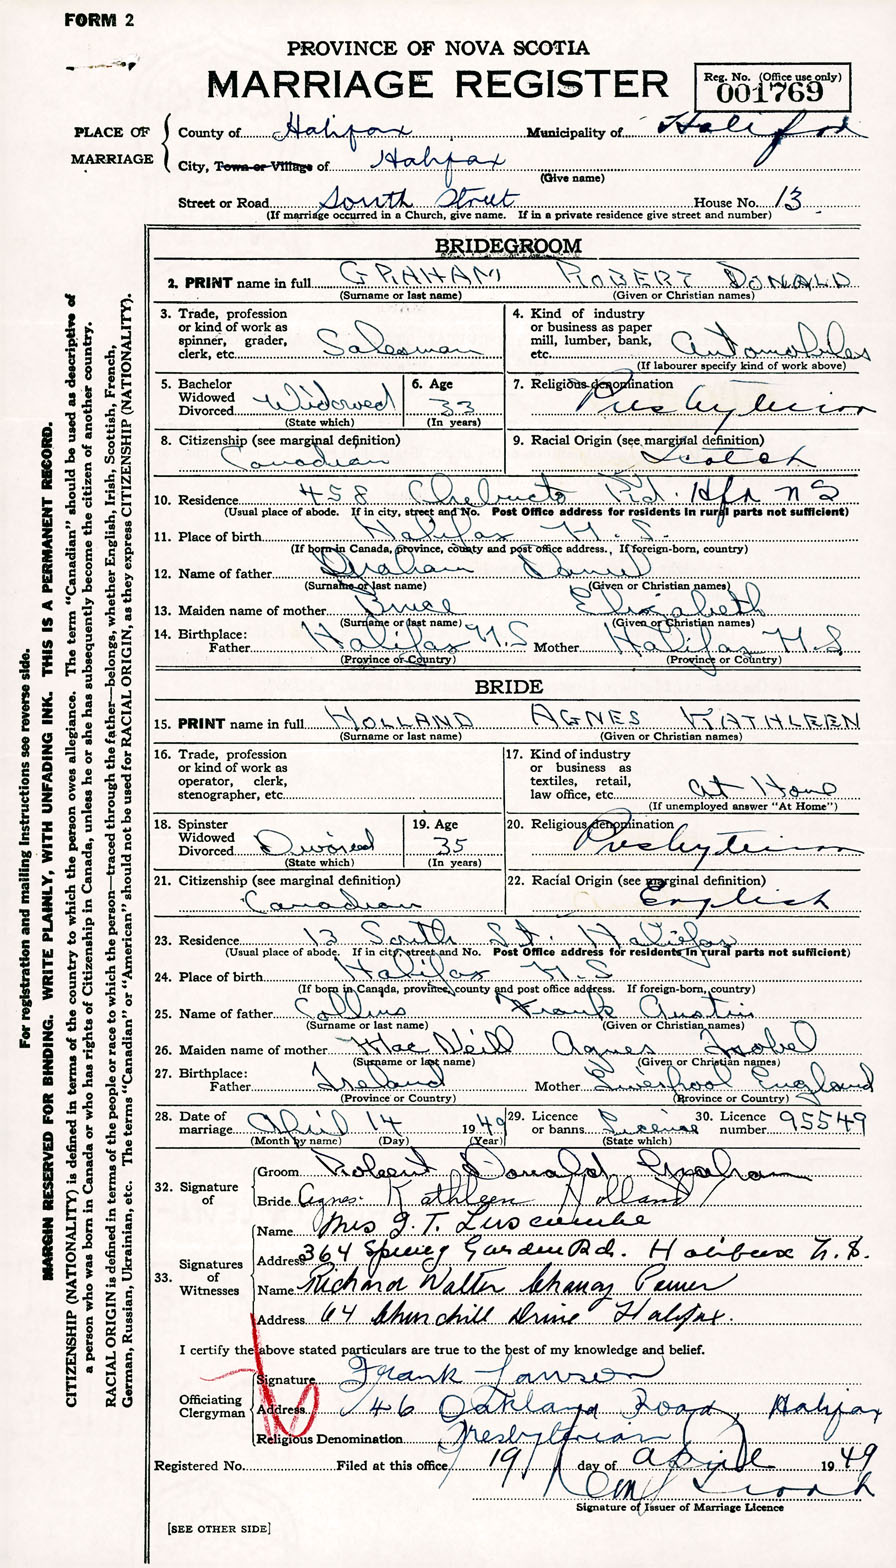 FORM 2
PROVINCE OF NOVA SCOTIA
MARRIAGE REGISTER
Reg. No. (Office use only)
001769
PLACE OF MARRIAGE
County of Halifax Municipality of Halifax
City, Town or Village of Halifax
(Give name)
Street or Road South Street House No. 13
(If marriage occurred in a Church, give name. If in a private residence give street and number)
BRIDEGROOM
2. PRINT name in full GRAHAM ROBERT DONALD
(Surname or last name) (Given or Christian names)
3. Trade, profession or kind of work as spinner, grader, clerk, etc. Salesman
4. Kind of industry or business as paper mill, lumber, bank, etc. Automobiles
(If labourer specify kind of work above)
5. Bachelor Widowed Divorced Widowed
(State which)
6. Age 33
(In years)
7. Religious denomination Presbyterian
8. Citizenship (see marginal definition) Canadian
9. Racial Origin (see marginal definition) Scotch
10. Residence 458 Chebucto Rd. Hfx NS
(Usual place of abode. If in city, street and No. Post Office address for residents in rural parts not sufficient)
11. Place of birth Halifax N.S.
(If born in Canada, province, county and post office address., If foreign-born, country)
12. Name of father Graham Daniel
(Surname or last name) (Given or Christian names)
13. Maiden name of mother Bruce Elizabeth
(Surname or last name) (Given or Christian names)
14. Birthplace:
Father Halifax N.S Mother Halifax N.S
(Province or Country) (Province or Country)
BRIDE
15. PRINT name in full HOLLAND AGNES KATHLEEN
(Surname or last name) (Given or Christian names)
16. Trade, profession or kind of work as operator, clerk, stenographer, etc.
17. Kind of industry or business as textiles, retail, law office, etc. At Home
(If unemployed answer "At Home")
18. Spinster Widowed Divorced Divorced
(State which)
19. Age 35
(In years)
20. Religious denomination Presbyterian
21. Citizenship (see marginal definition) Canadian
22. Racial Origin (see marginal definition) English
23. Residence 13 South St. Halifax
(Usual place of abode. If in city, street and No. Post Office address for residents in rural parts not sufficient)
24. Place of birth Halifax N.S
(If born in Canada, province, county and post office address. If foreign-born, country)
25. Name of father Collins Frank Austin
(Surname or last name) (Given or Christian names)
26. Maiden name of mother MacNeill Agnes Isobel
(Surname or last name) (Given or Christian names)
27. Birthplace:
Father Ireland Mother Liverpool England
(Province or Country) (Province or Country)
28. Date of marriage April 14 1949
(Month by name) (Day) (Year)
29. Licence or banns License
(State which)
30. Licence number 95549
32. Signature of
Groom Robert Donald Graham
Bride Agnes Kathleen Holland
33. Signatures of Witnesses
Name Mrs J. T. Luscombe
Address 364 Spring Garden Rd. Halifax N.S.
Name Richard Walter
Address 64 Churchill Drive Halifax.
I certify the above stated particulars are true to the best of my knowledge and belief.
Officiating Clergyman
Signature Frank Lawson
Address 46 Oakland Road, Halifax
Religious Denomination Presbyterian
Registered No. Filed at this office 19 day of April 1949
Signature of Issuer of Marriage Licence
[SEE OTHER SIDE]
For registration and mailing instructions see reverse side.
MARGIN RESERVED FOR BINDING. WRITE PLAINLY, WITH UNFADING INK. THIS IS A PERMANENT RECORD.
CITIZENSHIP (NATIONALITY) is defined in terms of the country to which the person owes allegiance. The term "Canadian" should be used as descriptive of
a person who was born in Canada or who has rights of Citizenship in Canada, unless he or she has subsequently become the citizen of another country.
RACIAL ORIGIN is defined in terms of the people or race to which the person—traced through the father—belongs, whether English, Irish, Scottish, French,
German, Russian, Ukrainian, etc. The terms "Canadian" or "American" should not be used for RACIAL ORIGIN, as they express CITIZENSHIP (NATIONALITY).